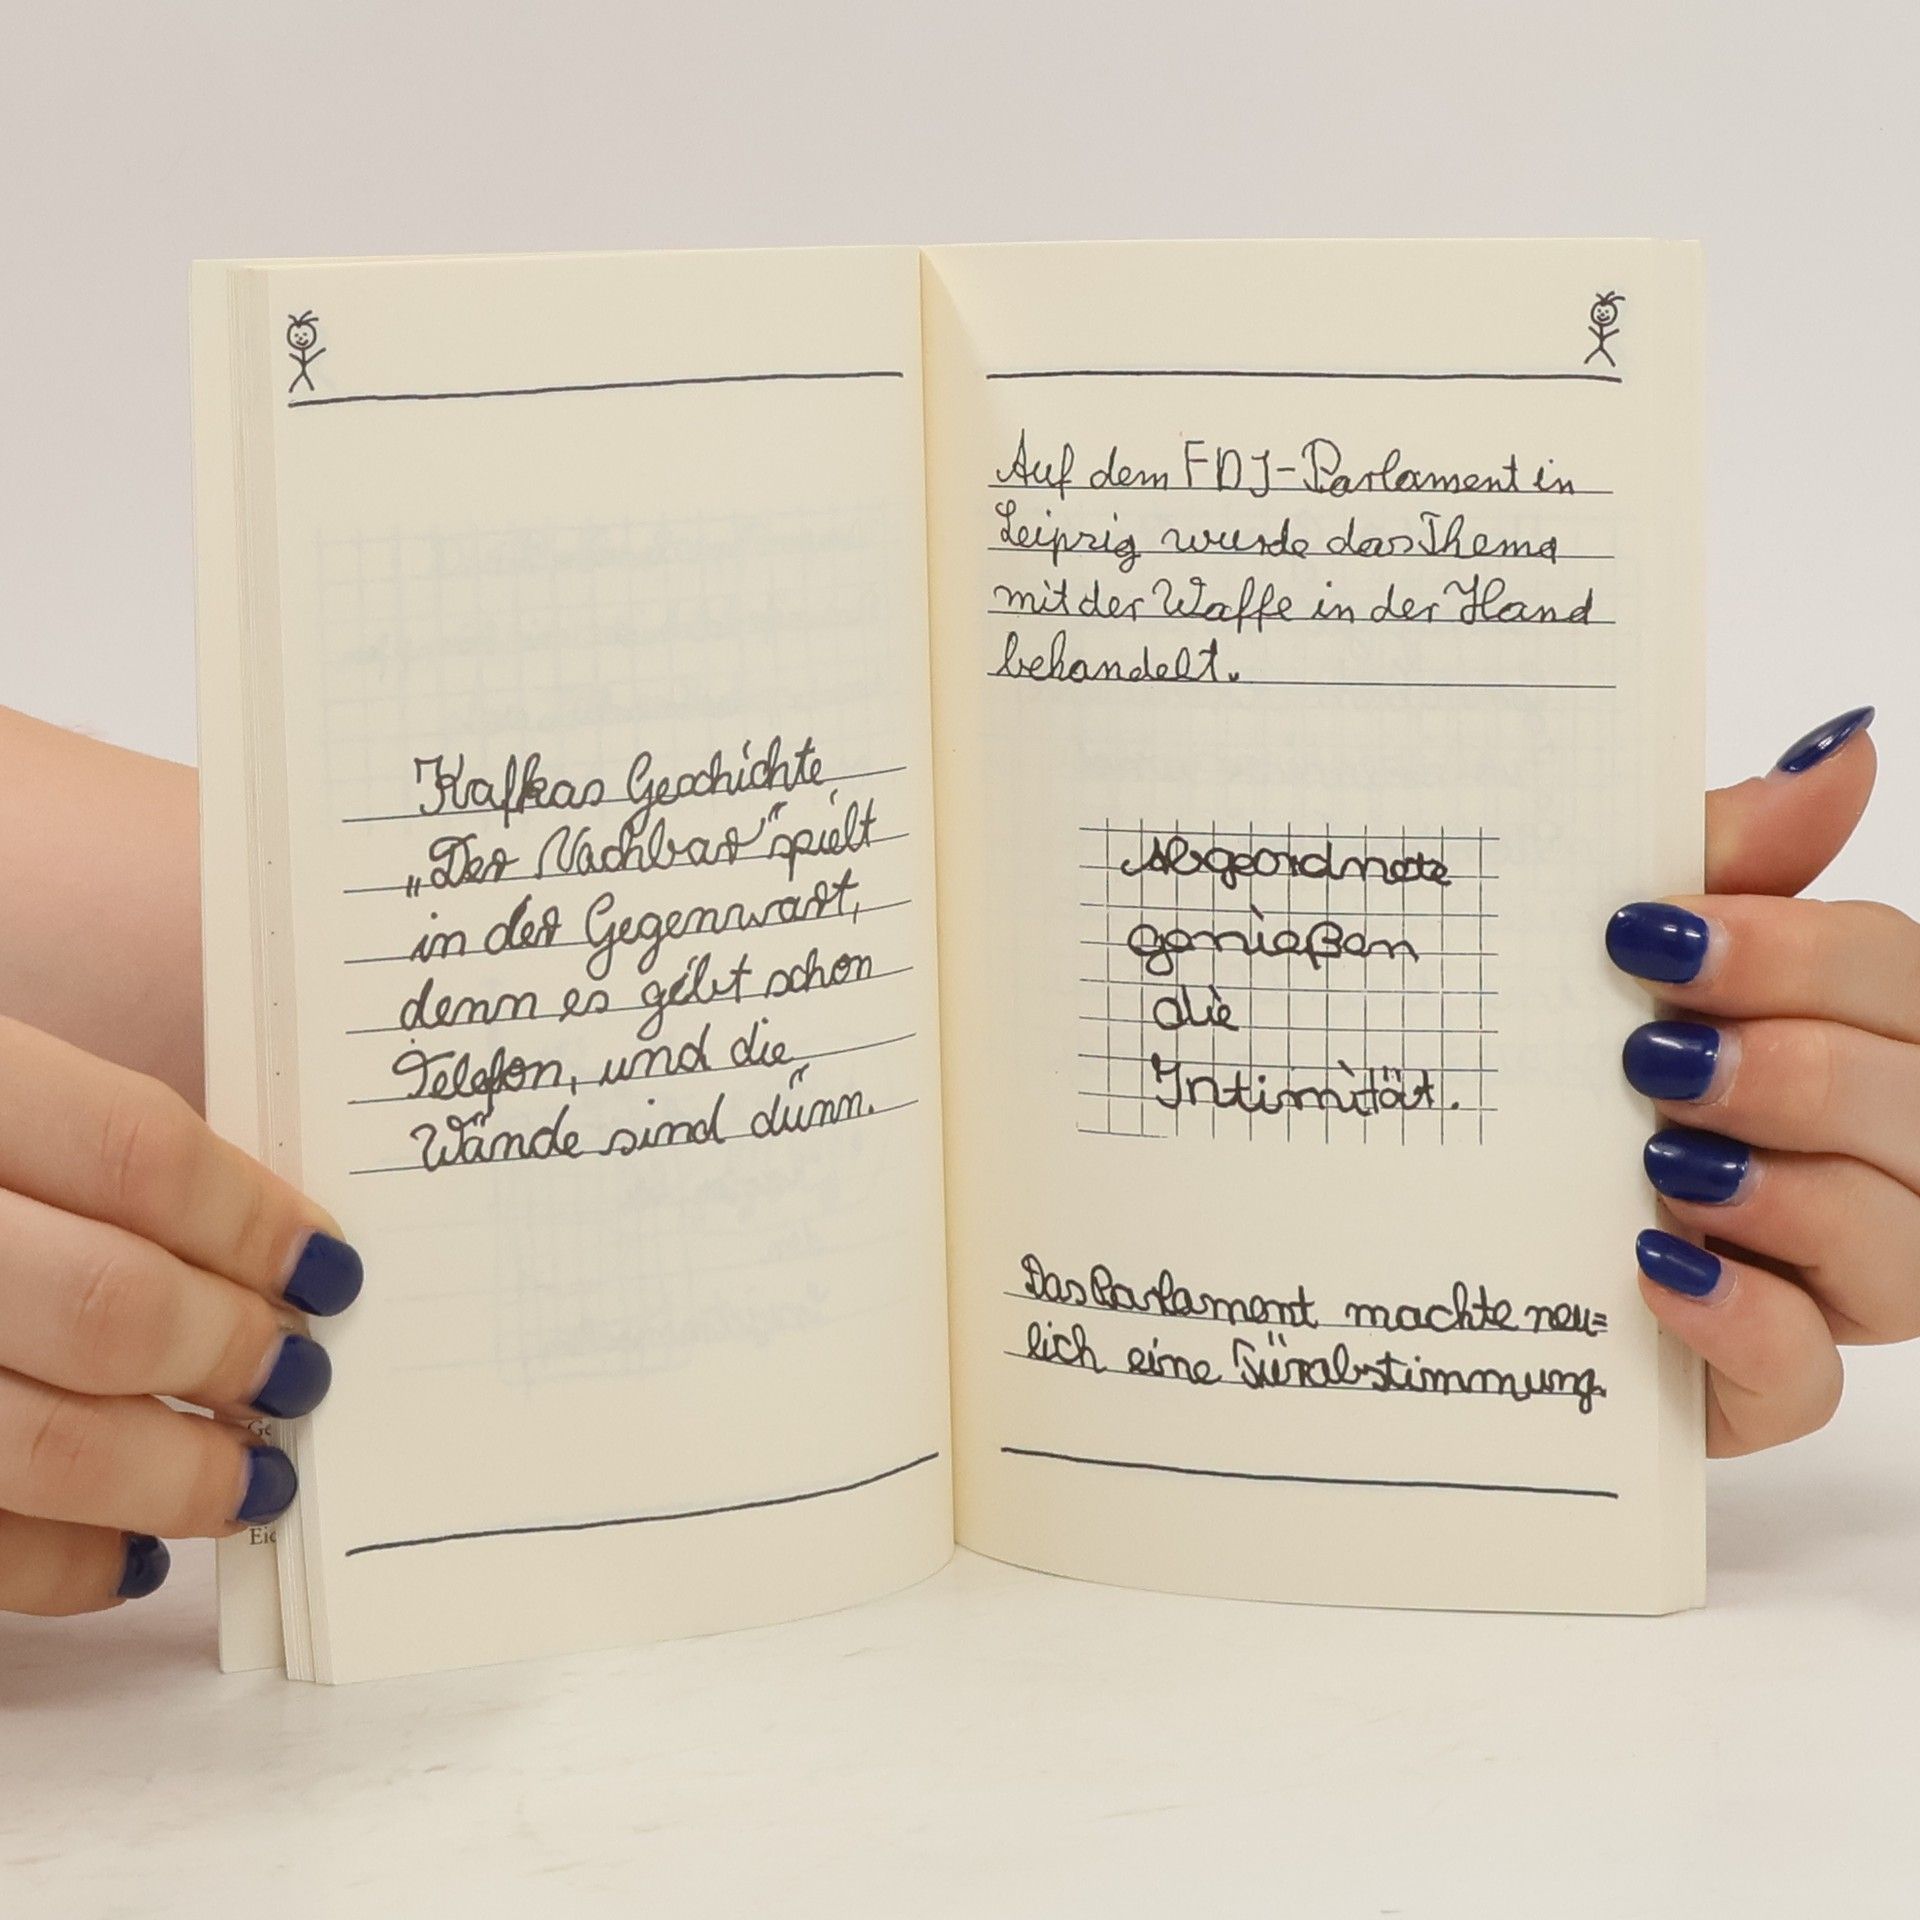 Kafkas Geschichte
„Der Nachbar" spielt
in der Gegenwart,
denn es gibt schon
Telefon, und die
Wände sind dünn.
Auf dem FDJ-Parlament in
Leipzig wurde das Thema
mit der Waffe in der Hand
behandelt.
Abgeordnete
genießen
die
Intimität.
Das Parlament machte neu=
lich eine Türabstimmung.
Ge
Eic